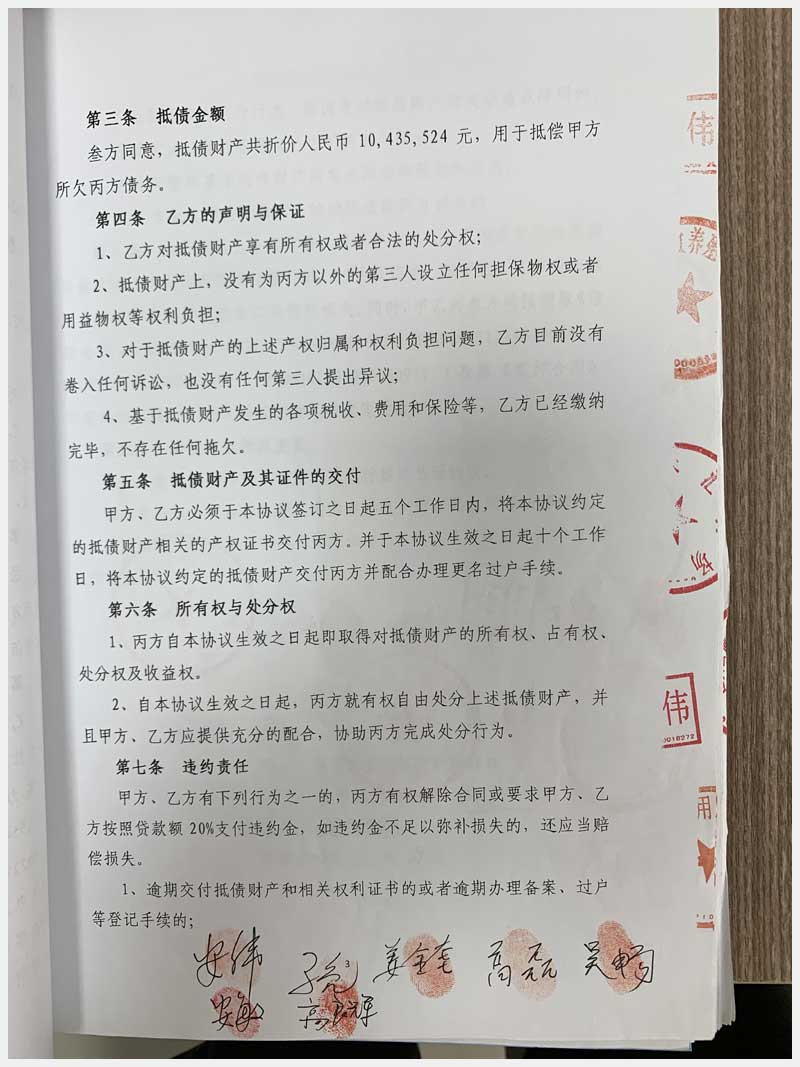 第三条　抵债金额
叁方同意，抵债财产共折价人民币 10,435,524 元，用于抵偿甲方
所欠丙方债务。
第四条　乙方的声明与保证
1、乙方对抵债财产享有所有权或者合法的处分权；
2、抵债财产上，没有为丙方以外的第三人设立任何担保物权或者
用益物权等权利负担；
3、对于抵债财产的上述产权归属和权利负担问题，乙方目前没有
卷入任何诉讼，也没有任何第三人提出异议；
4、基于抵债财产发生的各项税收、费用和保险等，乙方已经缴纳
完毕，不存在任何拖欠。
第五条　抵债财产及其证件的交付
甲方、乙方必须于本协议签订之日起五个工作日内，将本协议约定
的抵债财产相关的产权证书交付丙方。并于本协议生效之日起十个工作
日，将本协议约定的抵债财产交付丙方并配合办理更名过户手续。
第六条　所有权与处分权
1、丙方自本协议生效之日起即取得对抵债财产的所有权、占有权、
处分权及收益权。
2、自本协议生效之日起，丙方就有权自由处分上述抵债财产，并
且甲方、乙方应提供充分的配合，协助丙方完成处分行为。
第七条　违约责任
甲方、乙方有下列行为之一的，丙方有权解除合同或要求甲方、乙
方按照贷款额 20%支付违约金，如违约金不足以弥补损失的，还应当赔
偿损失。
1、逾期交付抵债财产和相关权利证书的或者逾期办理备案、过户
等登记手续的；
3
安伟 姜金奎 高磊 吴畅
安敏
伟
养
场
伟
0018272
用